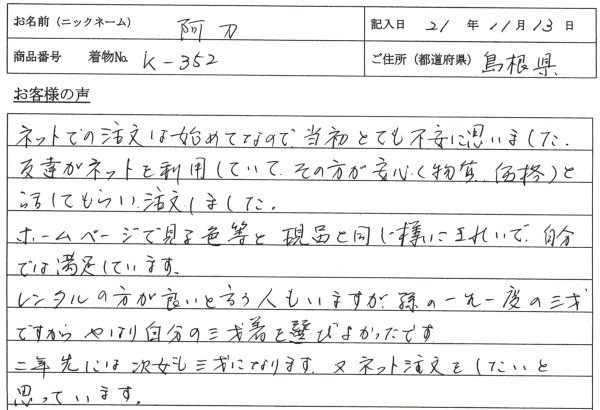 お名前（ニックネーム） 阿刀 記入日 21 年 11 月 13 日
商品番号 着物No. K-352 ご住所（都道府県） 島根県
お客様の声
ネットでの注文は始めてなので当初とても不安に思いました.
友達がネットを利用していて、その方が安心（物質、価格）と
話してもらい、注文しました.
ホームページで見る色等と現品と同じ様にきれいで、自分
では満足しています.
レンタルの方が良いと言う人もいますが、孫の一九一度の三才
ですからやはり自分の三才着を選びよかったです
二年先には次女も三才になります. 又ネット注文をしたいと
思っています.